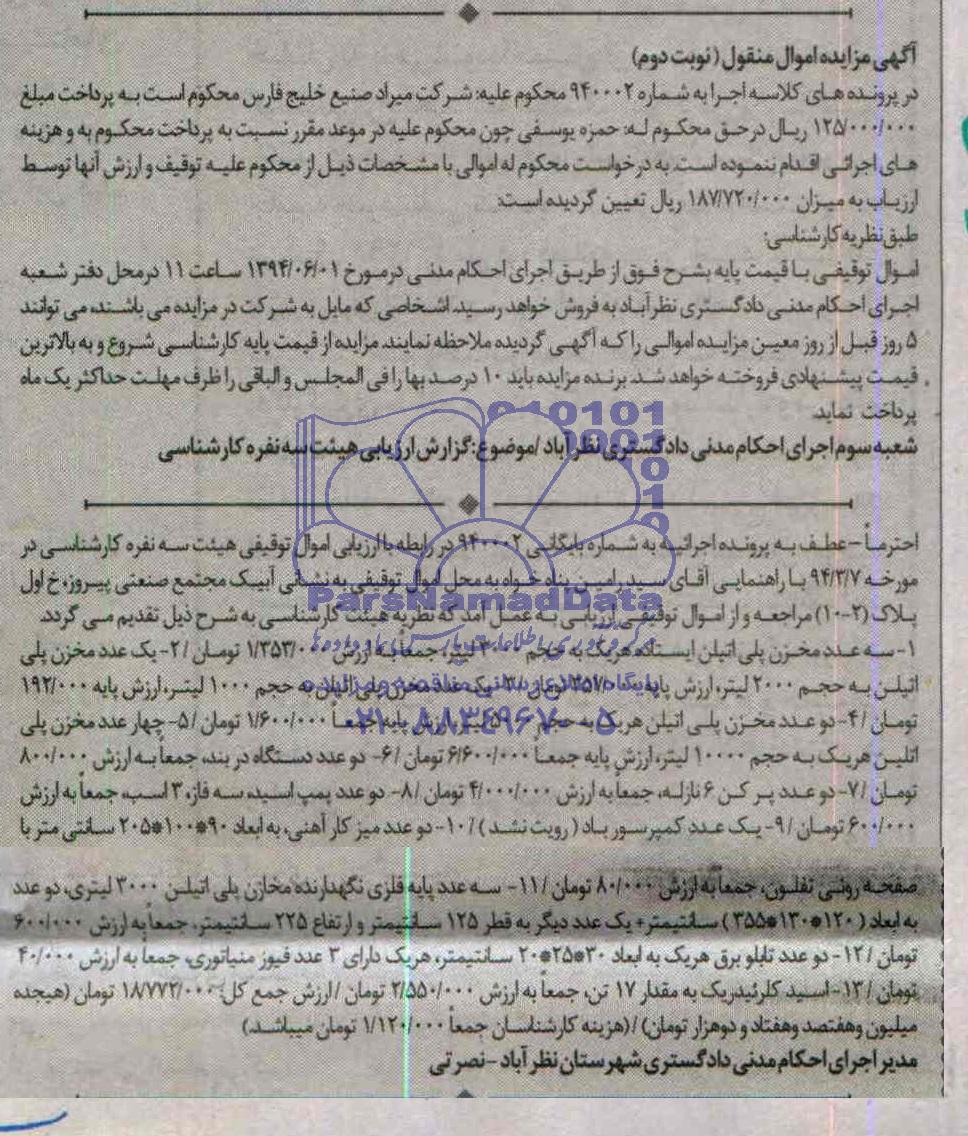 آگهی مزایده اموال منقول (نوبت دوم)
در پرونده های کلاسه اجرا به شماره ۹۴۰۰۰۲ محکوم علیه: شرکت میراد صنیع خلیج فارس محکوم است به پرداخت مبلغ
۱۲۵/۰۰۰/۰۰۰ ریال در حق محکوم له: حمزه یوسفی چون محکوم علیه در موعد مقرر نسبت به پرداخت محکوم به و هزینه
های اجرائی اقدام ننموده است. به درخواست محکوم له اموالی با مشخصات ذیل از محکوم علیه توقیف و ارزش آنها توسط
ارزیاب به میزان ۱۸۷/۷۲۰/۰۰۰ ریال تعیین گردیده است:
طبق نظریه کارشناسی:
اموال توقیفی با قیمت پایه بشرح فوق از طریق اجرای احکام مدنی در مورخ ۱۳۹۴/۰۶/۰۱ ساعت ۱۱ در محل دفتر شعبه
اجرای احکام مدنی دادگستری نظرآباد به فروش خواهد رسید. اشخاصی که مایل به شرکت در مزایده می باشند، می توانند
۵ روز قبل از روز معین مزایده اموالی را که آگهی گردیده ملاحظه نمایند. مزایده از قیمت پایه کارشناسی شروع و به بالاترین
قیمت پیشنهادی فروخته خواهد شد. برنده مزایده باید ۱۰ درصد بها را فی المجلس و الباقی را ظرف مهلت حداکثر یک ماه
پرداخت نماید.
شعبه سوم اجرای احکام مدنی دادگستری نظرآباد /موضوع: گزارش ارزیابی هیئت سه نفره کارشناسی
احتراماً – عطف به پرونده اجرائیه به شماره بایگانی ۹۴۰۰۰۲ در رابطه با ارزیابی اموال توقیفی هیئت سه نفره کارشناسی در
مورخه ۹۴/۳/۷ با راهنمایی آقای سید رامین پناه خواه به محل اموال توقیفی به نشانی آبیک مجتمع صنعتی پیروز، خ اول
پلاک (۲-۱۰) مراجعه و از اموال توقیفی ارزیابی به عمل آمد که نظریه هیئت کارشناسی به شرح ذیل تقدیم می گردد.
۱- سه عدد مخزن پلی اتیلن ایستاده هریک به حجم ۳۰۰۰ لیتر، جمعاً به ارزش ۱/۳۵۳/۰۰۰ تومان /۲- یک عدد مخزن پلی
اتیلن به حجم ۲۰۰۰ لیتر، ارزش پایه ۳۵۷/۰۰۰ تومان /۳- یک عدد مخزن پلی اتیلن به حجم ۱۰۰۰ لیتر، ارزش پایه ۱۹۲/۰۰۰
تومان /۴- دو عدد مخزن پلی اتیلن هریک به حجم لیتر، ارزش پایه جمعاً ۱/۶۰۰/۰۰۰ تومان /۵- چهار عدد مخزن پلی
اتلین هریک به حجم ۱۰۰۰۰ لیتر، ارزش پایه جمعاً ۶/۶۰۰/۰۰۰ تومان /۶- دو عدد دستگاه در بند، جمعاً به ارزش ۸۰۰/۰۰۰
تومان /۷- دو عدد پر کن ۶ نازله، جمعاً به ارزش ۴/۰۰۰/۰۰۰ تومان /۸- دو عدد پمپ اسید، سه فاز، ۳ اسب، جمعاً به ارزش
۶۰۰/۰۰۰ تومان /۹- یک عدد کمپرسور باد (رویت نشد) /۱۰- دو عدد میز کار آهنی، به ابعاد ۹۰*۱۰۰*۲۰۵ سانتی متر با
صفحه روئی تفلون، جمعاً به ارزش ۸۰/۰۰۰ تومان /۱۱- سه عدد پایه فلزی نگهدارنده مخازن پلی اتیلن ۳۰۰۰ لیتری، دو عدد
به ابعاد (۱۲۰*۱۳۰*۳۵۵) سانتیمتر+ یک عدد دیگر به قطر ۱۲۵ سانتیمتر و ارتفاع ۲۲۵ سانتیمتر، جمعاً به ارزش ۶۰۰/۰۰۰
تومان /۱۲- دو عدد تابلو برق هریک به ابعاد ۳۰*۲۵*۲۰ سانتیمتر، هریک دارای ۳ عدد فیوز منیاتوری، جمعاً به ارزش ۴۰/۰۰۰
تومان /۱۳- اسید کلرئیدریک به مقدار ۱۷ تن، جمعاً به ارزش ۲/۵۵۰/۰۰۰ تومان /ارزش جمع کل: ۱۸/۷۷۲/۰۰۰ تومان (هیجده
میلیون وهفتصد وهفتاد و دوهزار تومان) /(هزینه کارشناسان جمعاً ۱/۱۲۰/۰۰۰ تومان میباشد.)
مدیر اجرای احکام مدنی دادگستری شهرستان نظرآباد – نصرتی
ParsNamadData